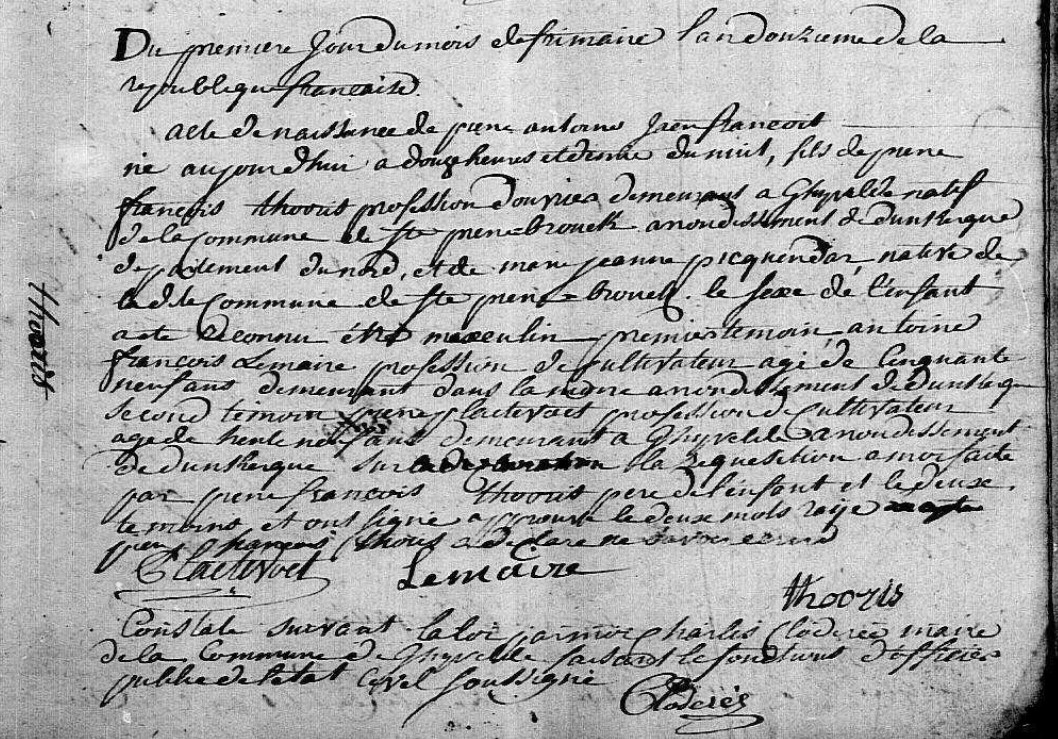 Du premiere Jour du mois de frimaire l an douzieme de la
republique francaise
acte de naissance de piere antoine Jaen francois
ne aujourdhui a douze heures et demie du nuit, fils de piere
francois thooris profession d ouvrier demeurant a Ghyvelde natif
de la Commune de Ste piere brouck arondissement de dunkerque
departement du nord, et de marie jeanne picquendar native de
la dite Commune de Ste piere brouck. le sexe de l'enfant
a ete Reconnu être masculin premier temoin, antoine
francois Lemaire profession de Cultivateur agé de Cinquante
neuf ans demeurant dans la meme arondissement de dunkerque
second temoin piere Clactevoet profession de Cultivateur
age de trente neuf ans demeurant a Ghyvelde arondissement
de dunkerque sur la Requesition a moi faite
par piere francois thooris pere de l'enfant et le deux
temoins, et ont signé approuve le deux mots raije
piere francois thooris a declare ne savoir ecrire
Clactevoet Lemaire
thooris
Constate suivant la loi par moi Charles Cloderée maire
de la Commune de Ghyvelde faisant le fonctions d'officier
public de l'etat Civel Soussigné
Cloderée
thooris